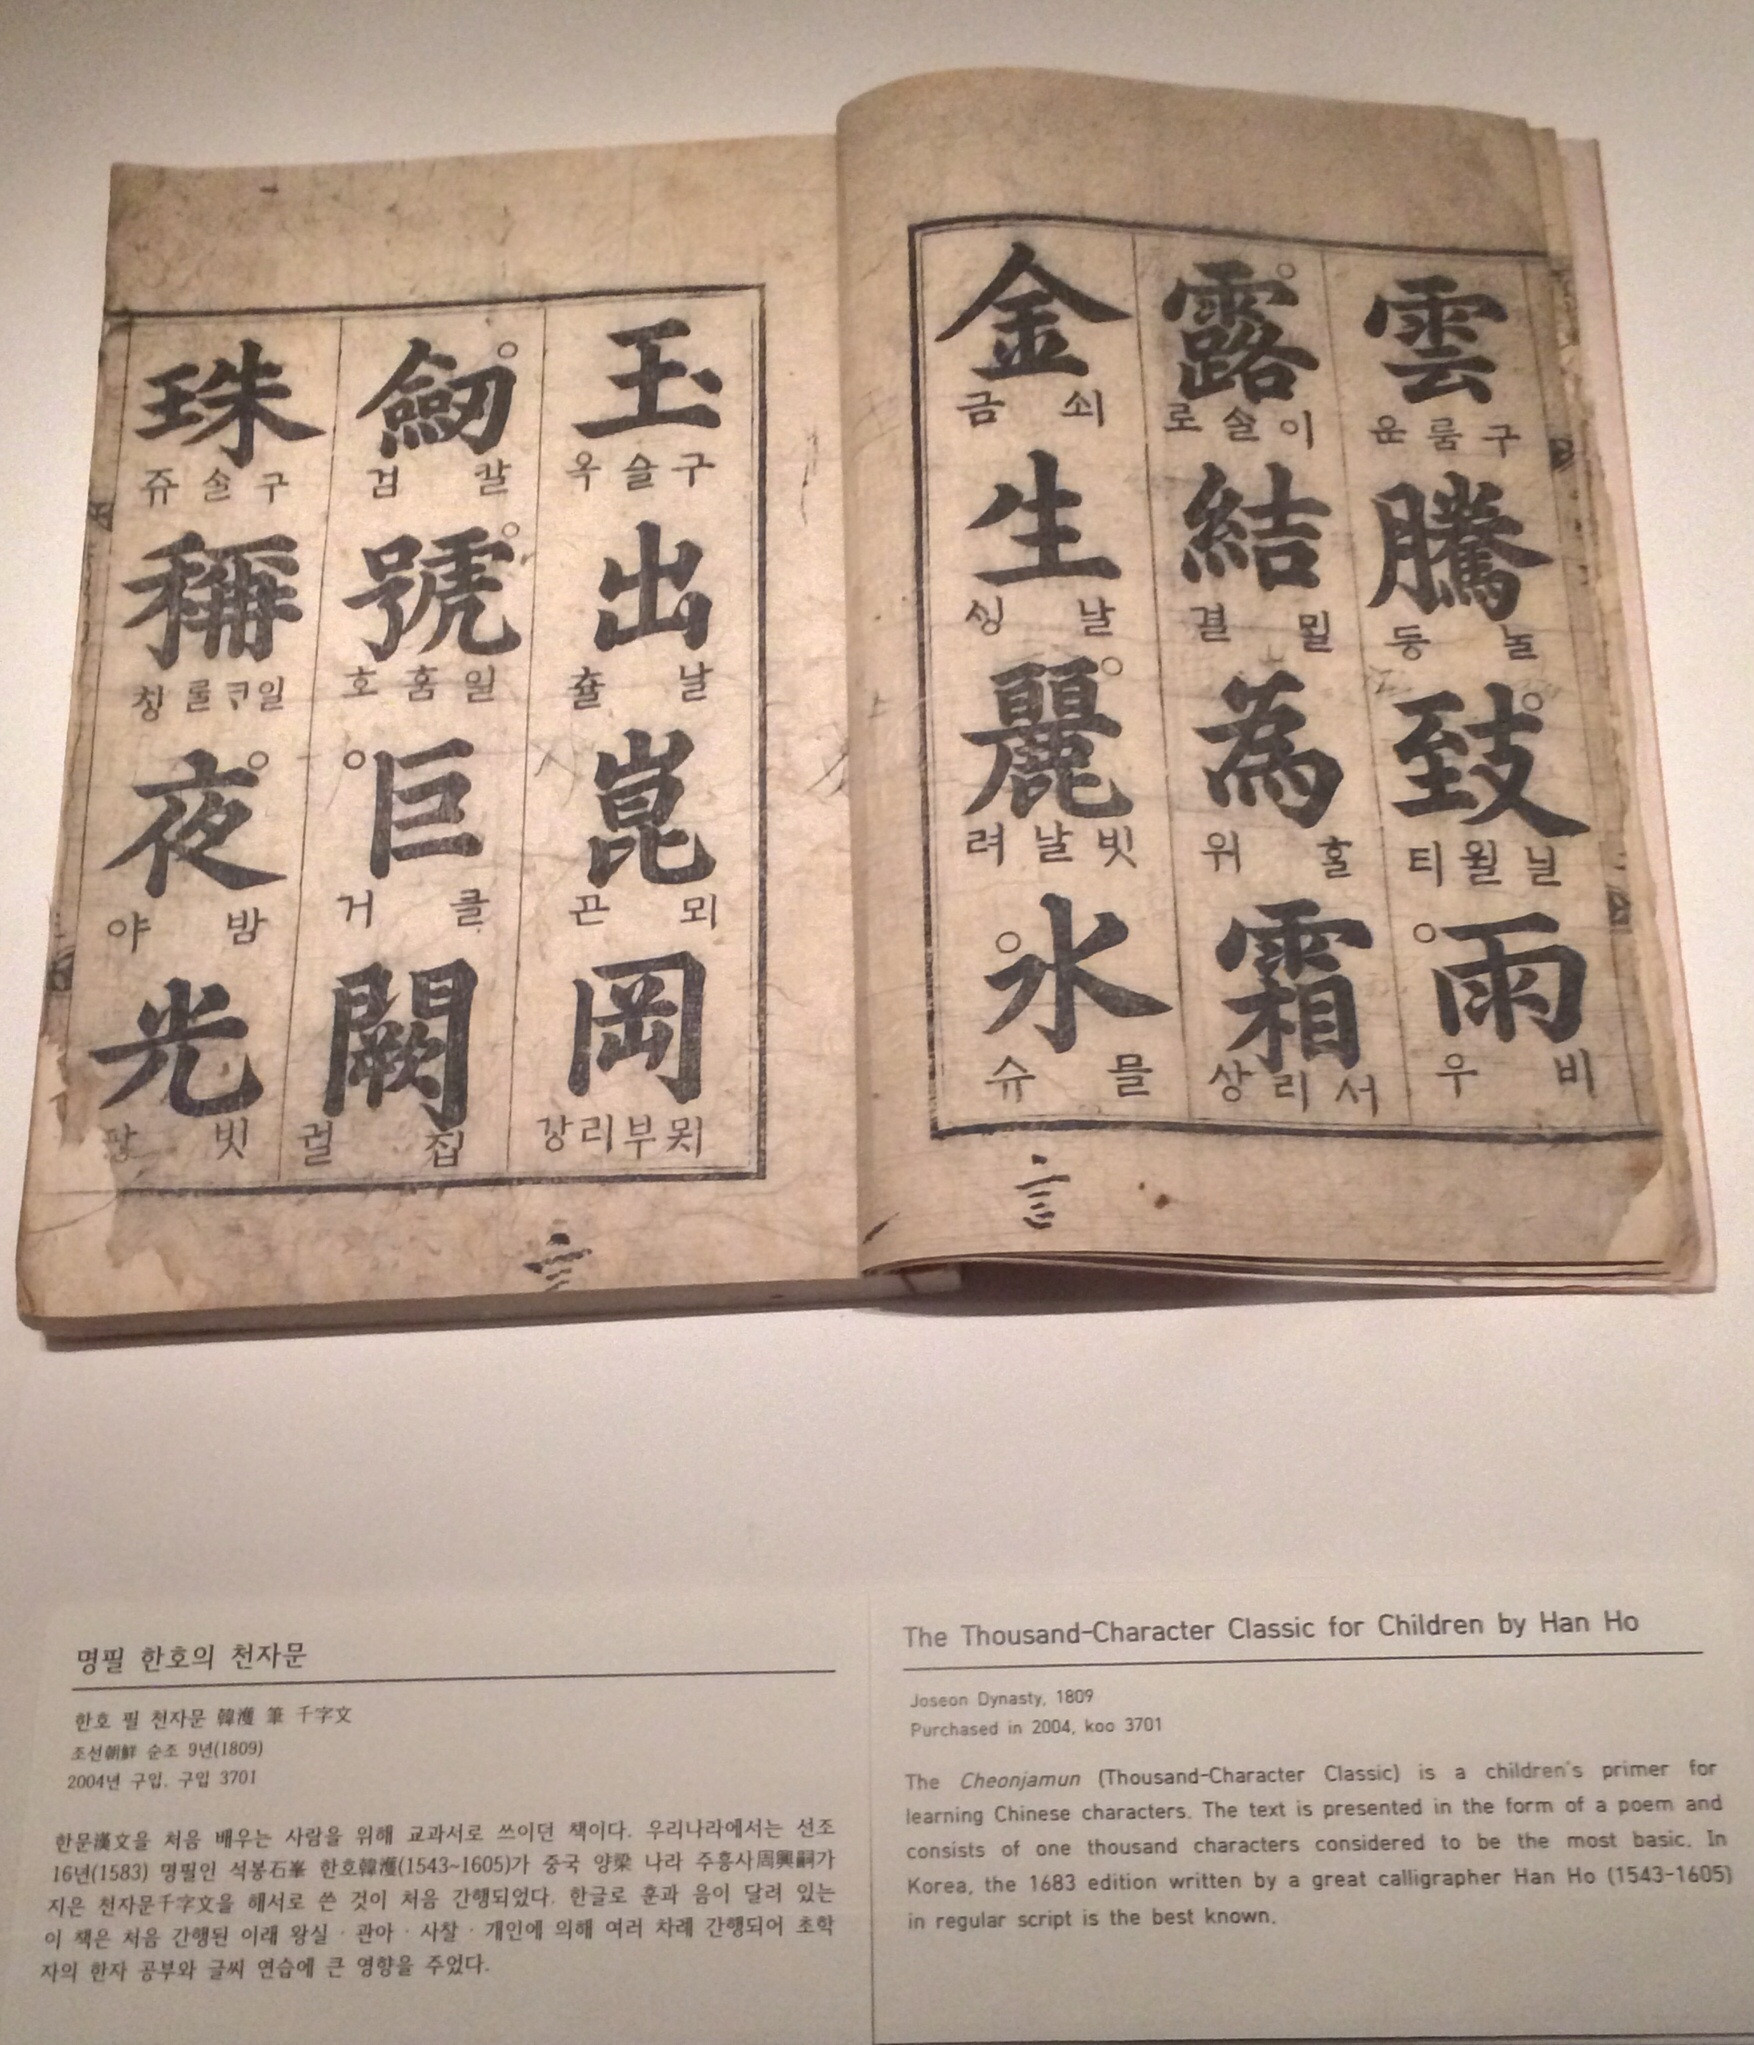 雲 구룸운 騰 놀등 致 닐윌티 雨 비우
露 이슬로 結 結 ᄆᆡᆯ결 為 ᄒᆞᆯ위 霜 서리상
金 쇠금 生 날ᄉᆡᆼ 麗 빗날려 水 믈슈
玉 구슬옥 出 날츌 崑 뫼곤 岡 묏부리강
劒 칼검 號 일홈호 巨 클거 闕 집궐
珠 구슬쥬 稱 일ᄏᆞ롤칭 夜 밤야 光 빗광
명필 한호의 천자문
한호 필 천자문 韓濩 筆 千字文
조선朝鮮 순조 9년(1809)
2004년 구입, 구입 3701
한문漢文을 처음 배우는 사람을 위해 교과서로 쓰이던 책이다. 우리나라에서는 선조
16년(1583) 명필인 석봉石峯 한호韓濩(1543~1605)가 중국 양梁 나라 주흥사周興嗣가
지은 천자문千字文을 해서로 쓴 것이 처음 간행되었다. 한글로 훈과 음이 달려 있는
이 책은 처음 간행된 이래 왕실 · 관아 · 사찰 · 개인에 의해 여러 차례 간행되어 초학
자의 한자 공부와 글씨 연습에 큰 영향을 주었다.
The Thousand-Character Classic for Children by Han Ho
Joseon Dynasty, 1809
Purchased in 2004, koo 3701
The Cheonjamun (Thousand-Character Classic) is a children's primer for
learning Chinese characters. The text is presented in the form of a poem and
consists of one thousand characters considered to be the most basic. In
Korea, the 1683 edition written by a great calligrapher Han Ho (1543-1605)
in regular script is the best known.